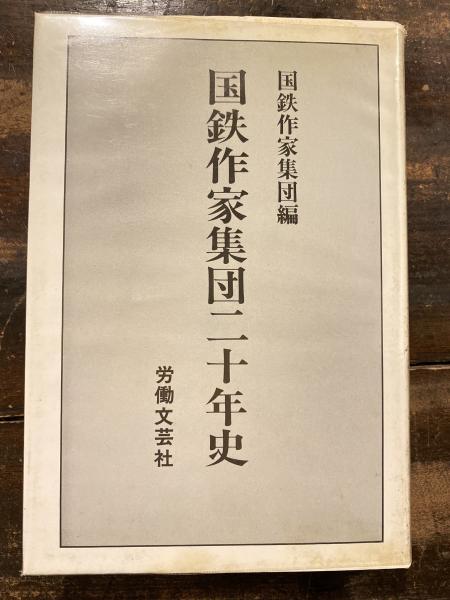 国鉄作家集団編
国鉄作家集団二十年史
労働文芸社